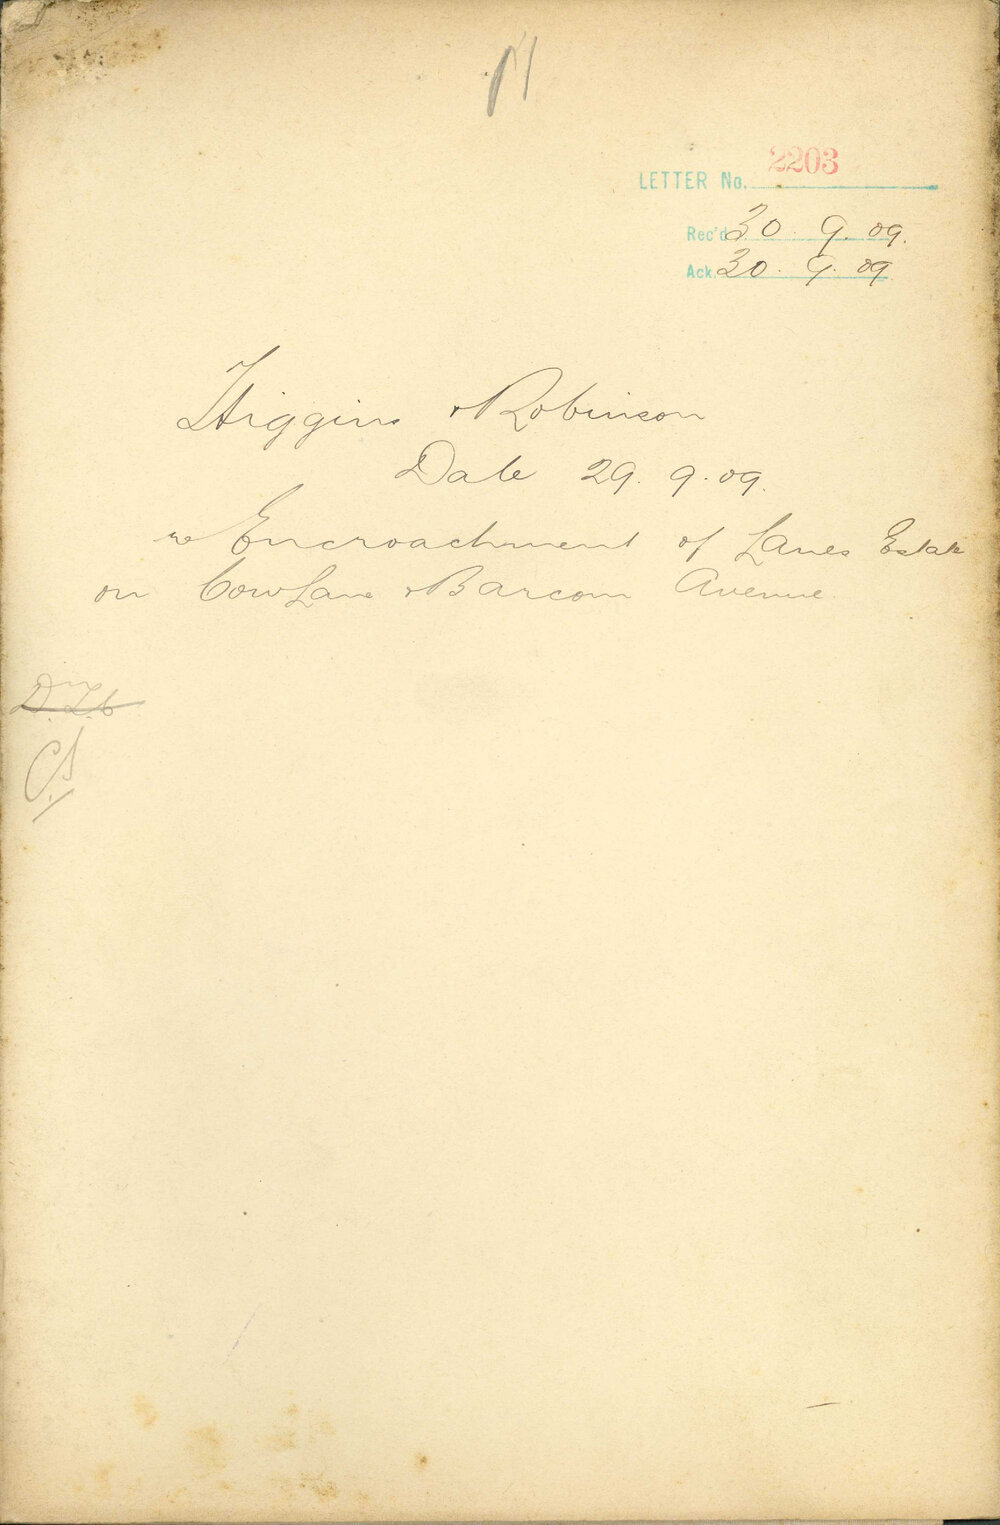 LETTER No. 2203
Rec'd 30. 9. 09.
Ack. 30. 9. 09
Higgins & Robinson
Date 29. 9. 09.
re Encroachment of Lanes Estate
on Cow Lane & Barcom Avenue.